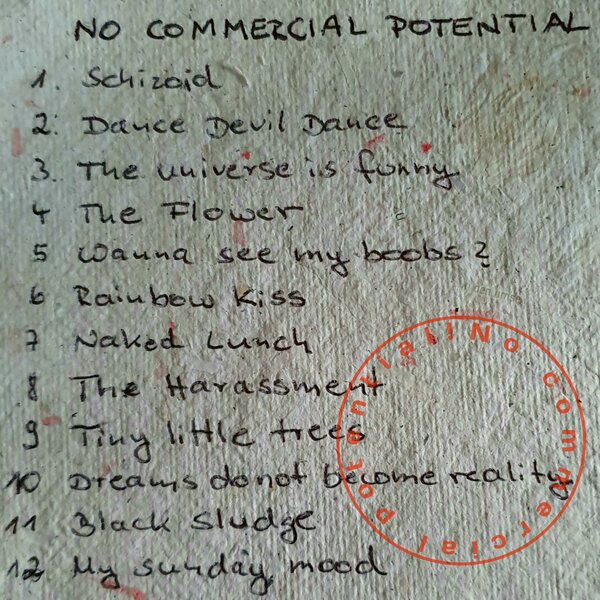 NO COMMERCIAL POTENTIAL
1. Schizoid
2. Dance Devil Dance
3. The universe is funny
4 The Flower
5 Wanna see my boobs?
6 Rainbow Kiss
7 Naked Lunch
8 The Harassment
9 Tiny little trees
10 Dreams do not become reality
11 Black Sludge
12 My sunday mood
No commercial potential!